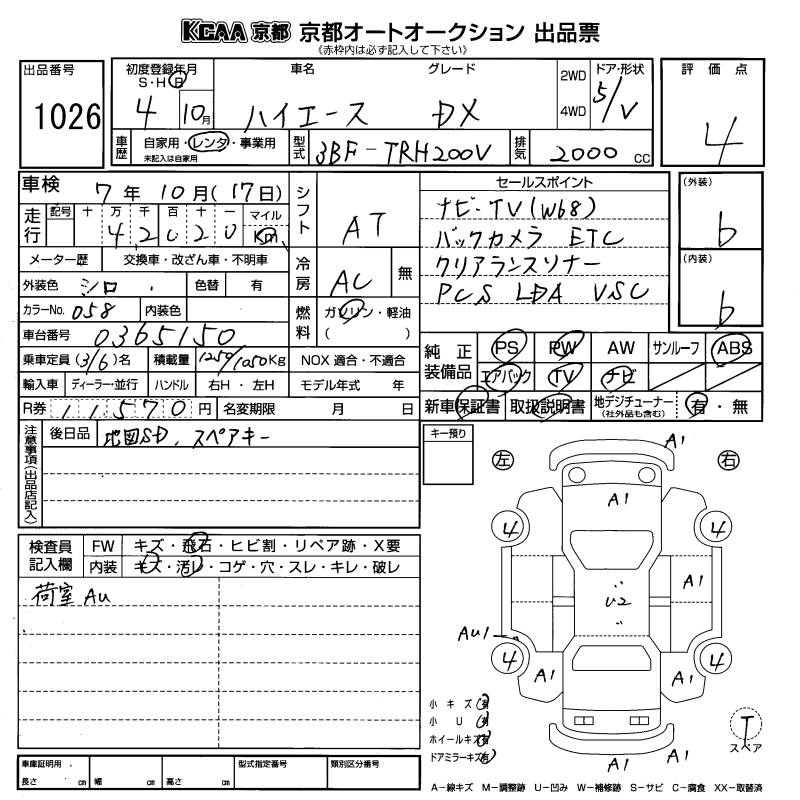 KCAA 京都 京都オートオークション 出品票
《赤枠内は必ず記入して下さい》
出品番号 1026
初度登録年月 S・H・R 4 10月
車名 ハイエース
グレード DX
2WD 4WD
ドア・形状 5/V
評価点 4
車歴 自家用・レンタ・事業用
未記入は自家用
型式 3BF-TRH200V
排気 2000 CC
車検 7年10月(17日)
走行 記号 十 万 千 百 十 一 マイル
4 2 0 2 0 Km
メーター歴 交換車・改ざん車・不明車
外装色 シロ 色替 有
カラーNo. 058 内装色
車台番号 0365150
乗車定員 (3/6)名 積載量 1250/1050Kg
輸入車 ディーラー・並行 ハンドル 右H・左H
R券 11570円 名変期限 月 日
シフト AT
冷房 AC 無
燃料 ガソリン・軽油
( )
NOX 適合・不適合
モデル年式 年
セールスポイント
ナビ・TV(W68)
バックカメラ ETC
クリアランスソナー
PCS LDA VSC
(外装) b
(内装) b
純正装備品 PS PW AW サンルーフ ABS
エアバック TV ナビ
新車保証書 取扱説明書 地デジチューナー(社外品も含む) 有・無
注意事項(出品店記入)
後日品 地図SD、スペアキー
キー預り
検査員記入欄
FW キズ・飛石・ヒビ割・リペア跡・X要
内装 キズ・汚レ・コゲ・穴・スレ・キレ・破レ
荷室 AU
左 右
A1
A1
4 4
A1
U2
AU1
4 4
A1 A1
A1 A1
小キズ(有)
小U(有)
ホイールキズ(有)
ドアミラーキズ(有)
T
スペア
車庫証明用、 長さ cm 幅 cm 高さ cm
型式指定番号
類別区分番号
A−線キズ M−調整跡 U−凹み W−補修跡 S−サビ C−腐食 XX−取替済